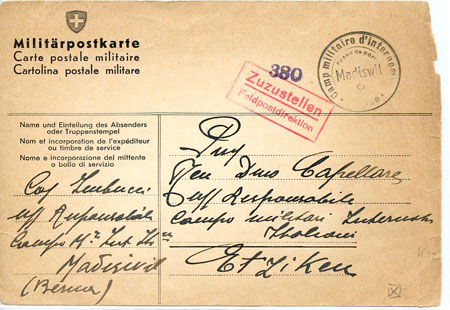 Militärpostkarte
Carte postale militaire
Cartolina postale militare
380
Zuzustellen
Feldpostdirektion
Camp militaire d'internem
Madiswil
Name und Einteilung des Absenders
oder Truppenstempel
Nom et incorporation de l'expéditeur
ou timbre de service
Nome e incorporazione del mittente
o bollo di servizio
Ten Capellaro
Uff Responsabile
Campo militari Internati
Italiani
Etziken
Uff Responsabile
Campo
Madisivil
(Berna)